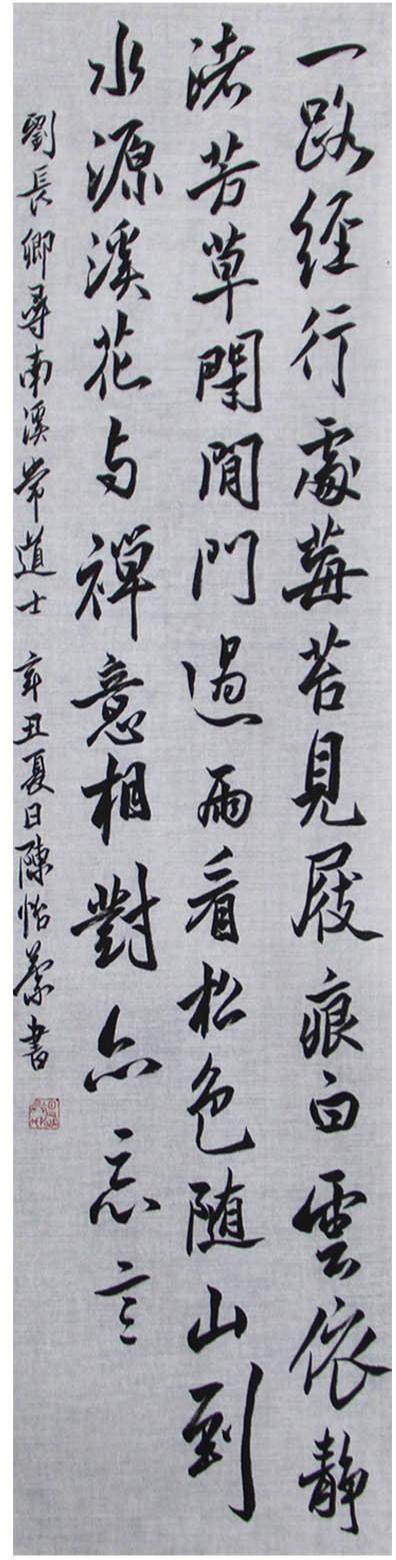 一路經行處莓苔見屐痕白雲依靜
渚芳草閉閒門過雨看松色隨山到
水源溪花与禪意相對亦忘言
劉長卿尋南溪常道士 辛丑夏日陳怡蓁書